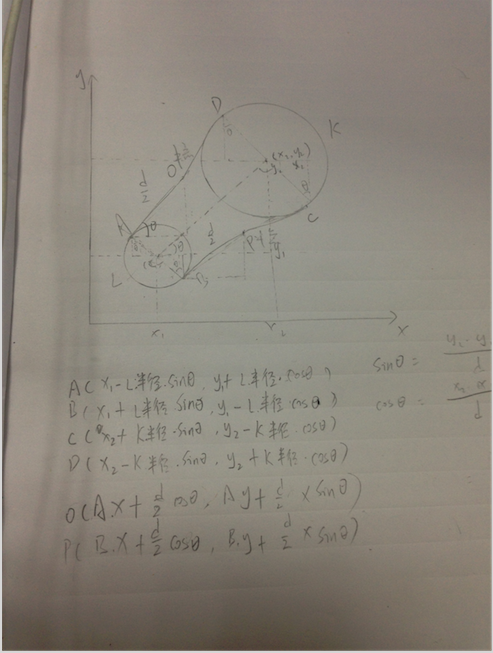 y
D
K
O
(x₂, y₂)
d/2
θ
C
A
θ
d/2
P
L
B
x₁
x₂
x
A( x₁-L半径·sinθ, y₁+L半径·cosθ)
B( x₁+L半径·sinθ, y₁-L半径·cosθ)
C( x₂+K半径·sinθ, y₂-K半径·cosθ)
D( x₂-K半径·sinθ, y₂+K半径·cosθ)
O(A.x+d/2 cosθ, A.y+d/2×sinθ)
P( B.x+d/2cosθ, B.y+d/2×sinθ)
sinθ = y₂-y / d
cosθ = x₂-x / d